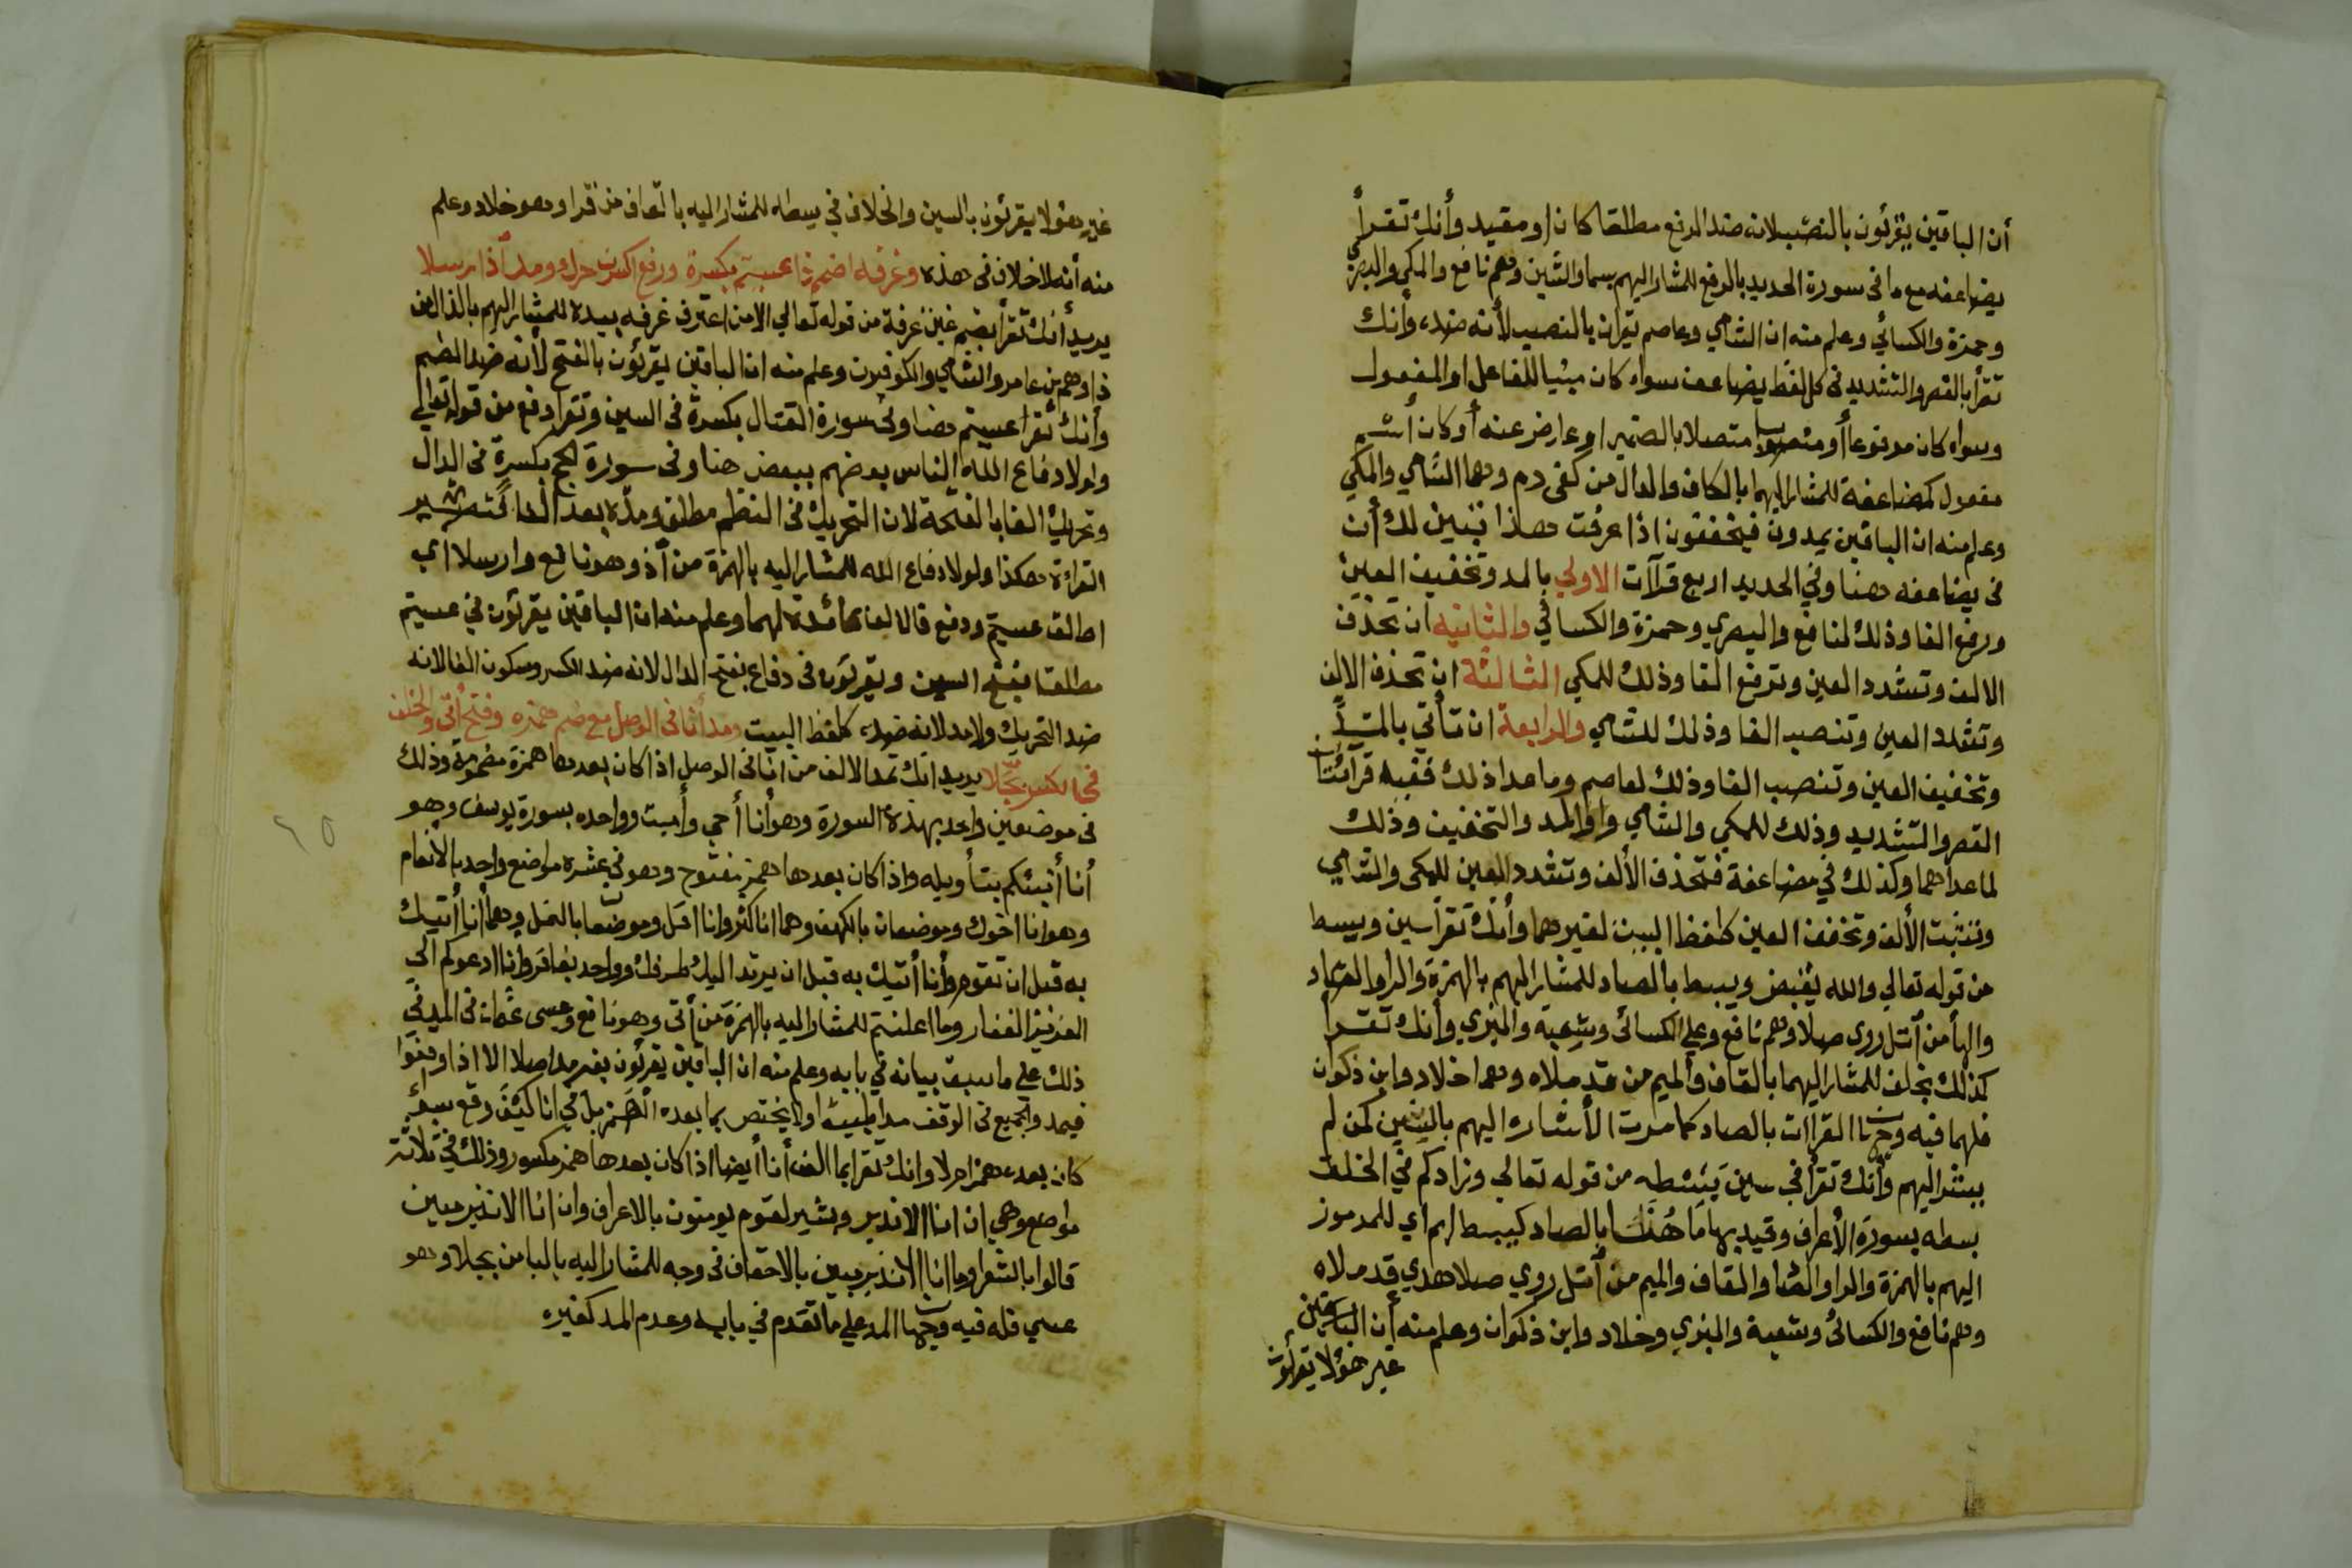 أن الباقين يقرئون بالنصب لانه ضد الرفع مطلقا كان او مقيد وأنك تقرأ
يضاعفه مع ما في سورة الحديد بالرفع للمشار اليهم بسما والشين وهم نافع والمكي والبصري
وحمزة والكسائي وعلم منه ان الشامي وعاصم يقران بالنصب لأنه ضده وأنك
تقرأ بالقصر والتشديد في كل لفظ يضاعف سواء كان مبنيا للفاعل او المفعول
وسواء كان مرفوعا أو منصوبا متصلا بالضمير او عارض عنه أو كان أسم
مفعول كمضاعفة للمشار اليهما بالكاف والدال من كفى دم وهما الشامي والمكي
وعلم منه ان الباقين يمدون فيخففون اذا عرفت هذا تبين لك أن
في يضاعفه هنا وفي الحديد اربع قرآآت الاولي بالمد وتخفيف العين
ورفع الفا وذلك لنافع والبصري وحمزة والكسائي والثانيه ان تحذف
الالف وتشدد العين وترفع الفا وذلك للمكي الثالثة ان تحذف الالف
وتشدد العين وتنصب الفا وذلك للشامي والرابعة ان تأتي بالمد
وتخفيف العين وتنصب الفا وذلك لعاصم وما عدا ذلك ففيه قرآئتان
القصر والتشديد وذلك للمكي والشامي والمد والتخفيف وذلك
لما عداهما وكذلك في مضاعفة فتحذف الألف وتشدد العين للمكي والشامي
وتثبت الألف وتخفف العين كلفظ البيت لغيرهما وأنك تقرأ سين ويبسط
من قوله تعالي والله يقبض ويبسط بالصاد للمشار اليهم بالهمزة والراو الصاد
والهأ من أتل روى صلا وهم نافع وعلي الكسائي وشعبة والبزي وأنك تقرأ
كذلك بخلف للمشار اليهما بالقاف والميم من قد ملاه وهما خلاد وابن ذكوان
فلهما فيه وجهان القراات بالصاد كما مرت الأشاره اليهم بالسين كمن لم
يشر اليهم وأنك تقرأ في سين يبسطه من قوله تعالي وزادكم في الخلق
بسطه بسورة الأعراف وقيد بها ما هنا بالصاد كيبسط اي للمرموز
اليهم بالهمزة والراو الصاد والقاف والميم من أتل روي صلا هدي قد ملاه
وهم نافع والكسائي وشعبة والبزي وخلاد وابن ذكوان وعلم منه أن الباقين
غير هؤلا يقرئون
غير هؤلا يقرئون بالسين والخلاف في يبسطه للمشار اليه بالقاف من قرا وهو خلاد وعلم
منه أنه لا خلاف في هذه وغرفه اضم ذا عسيتم بكسرة ورفع اكسرن حرك ومد أذ ارسلا
يريد أنك تقرأ بضم غين غرفة من قوله تعالي الا من اغترف غرفه بيده للمشار اليهم بالذال من
ذا وهم بن عامر والشامي والكوفيون وعلم منه ان الباقين يقرئون بالفتح لأنه ضد الضم
وأنك تقرأ عسيتم هنا وفي سورة القتال بكسرة في السين وتقرا دفع من قوله تعالي
ولولا دفاع الله الناس بعضهم ببعض هنا وفي سورة الحج بكسرة في الدال
وتحريك الفا بالفتحة لان التحريك في النظم مطلق ومده بعد الفا
القراءة هكذا ولولا دفاع الله للمشار اليه بالهمزة من أذ وهو نافع وارسلا أي
اطالق عسيتم ودفع فالالف عائدة لهما وعلم منه ان الباقين يقرئون في عسيتم
مطلقا بفتح السين ويقرئون في دفاع بفتح الدال لانه ضد الكسر وسكون الفا لانه
ضد التحريك ولا مد لانه ضده كلفظ البيت ومد أنا في الوصل مع ضم همزه وفتح أتى والخلف
في الكسر بجلا يريد انك تمد الالف من انا في الوصل اذا كان بعدها همزة مضمومة وذلك
في موضعين واحد بهذه السورة وهو أنا أحي وأميت وواحده بسورة يوسف وهو
أنا أنبئكم بتأويله واذا كان بعدها همز مفتوح وهو في عشره مواضع واحد بالأنعام
وهو انا اخوك وموضعان بالكهف وهما انا اكثر وانا اقل وموضعا بالنمل وهما أنا أتيك
به قبل ان تقوم وأنا أتيك به قبل ان يرتد اليك طرفك وواحد بغافر وانا ادعوكم الي
العزيز الغفار وما اعلنتم للمشار اليه بالهمزة من أتى وهو نافع وعيسى عثمان في المدني
ذلك علي ما سبق بيانه في بابه وعلم منه ان الباقين يقرئون بغير مد اصلا الا اذا وقفوا
فيمد والجميع في الوقف مدا طبيعيا ولا يختص بما بعده الهمز بل في انا كيف وقع سواء
كان بعده همز ام لا وانك تقرا بما الف أنا أيضا اذا كان بعدها همز مكسور وذلك في ثلاثة
مواضع وهي ان انا الا نذير وبشير لقوم يومنون بالاعراف وان انا الا نذير مبين
قالوا بالشعرا وما انا الا نذير مبين بالاحقاف في وجه للمشار اليه بالبا من بجلا وهو
عسي فله فيه وجهان المد علي ما تقدم في بابه وعدم المد كغيره